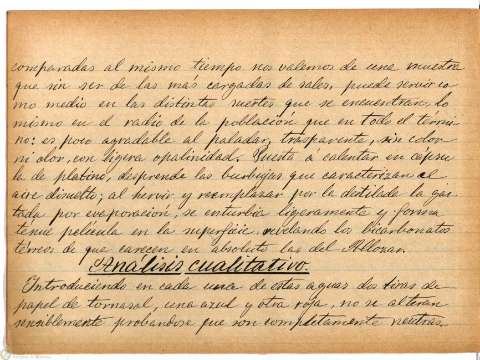 comparadas al mismo tiempo nos valemos de una muestra
que sin ser de las más cargadas de sales, puede servir co
mo medio en las distintas suertes que se encuentran, lo
mismo en el radio de la población que en todo el térmi
no: es poco agradable al paladar, trasparente, sin color
ni olor, con ligera opalinidad. Puesta a calentar en cápsu
la de platino, desprende las burbujas que caracterizan el
aire disuelto; al hervir y reemplazar por la destilada la gas
tada por evaporación, se enturbia ligeramente y forma
ténue película en la superficie, revelando los bicarbonatos
térreos de que carecen en absoluto las del Allozar.
Análisis cualitativo.
Introduciendo en cada una de estas aguas dos tiras de
papel de tornasol, una azul y otra roja, no se alteran
sensiblemente probandose que son completamente neutras.